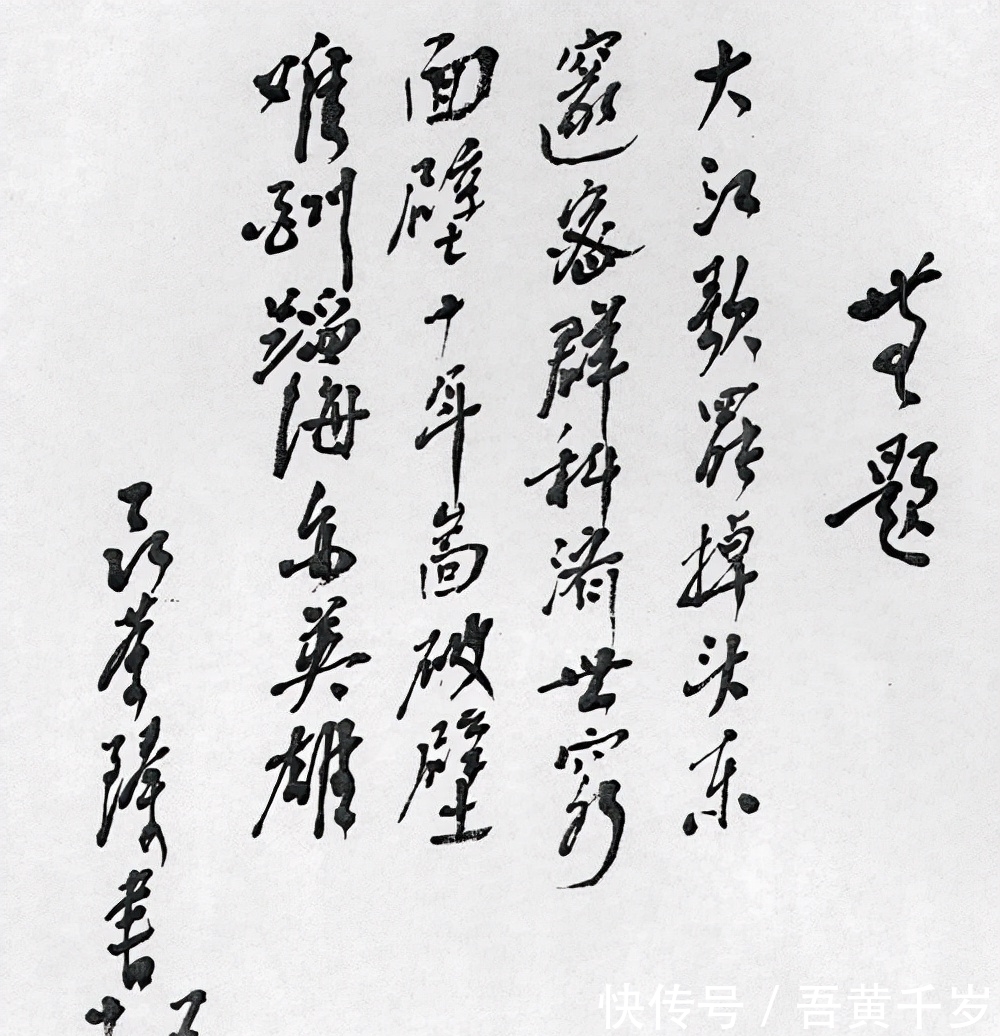 無题
大江歌罷掉头东
邃密群科济世穷
面壁十年图破壁
难酬蹈海亦英雄
聂荣臻書
快传号 / 吾黄千岁